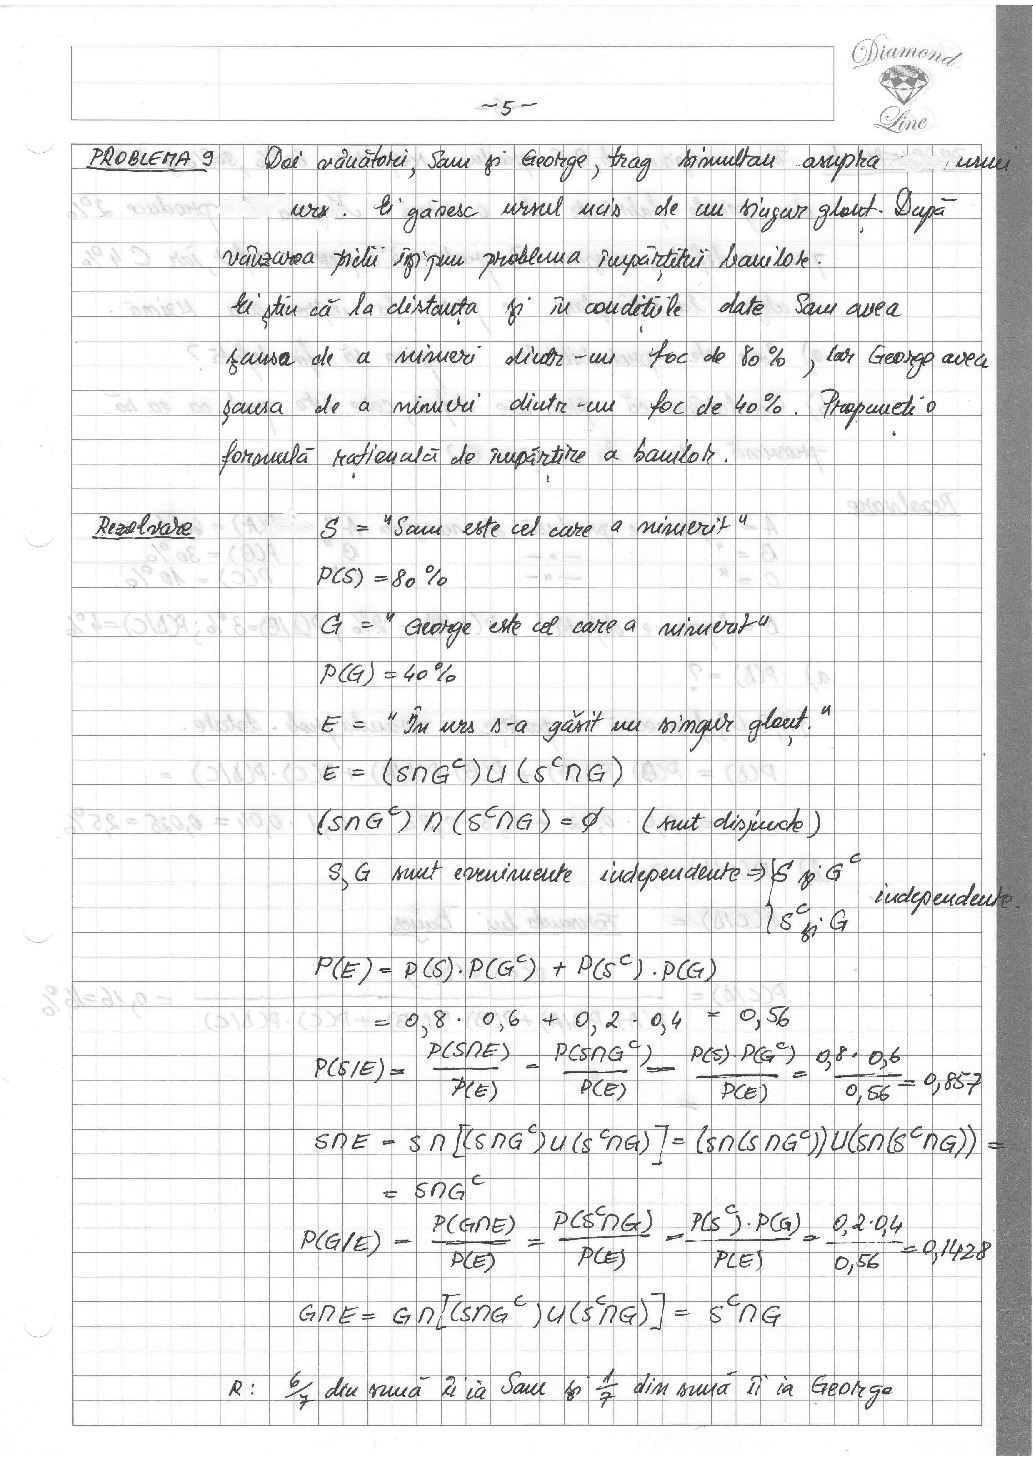 Diamond
Line
-5-
PROBLEMA 9 Doi vânători, Sam și George, trag simultan asupra unui
urs. Ei găsesc ursul ucis de un singur glonț. După
vânzarea pielii își pun problema împărțirii banilor.
Ei știu că la distanța și în condițiile date Sam avea
șansa de a nimeri dintr-un foc de 80%, iar George avea
șansa de a nimeri dintr-un foc de 40%. Propuneți o
formulă rațională de împărțire a banilor.
Rezolvare S = "Sam este cel care a nimerit"
P(S) = 80%
G = "George este cel care a nimerit"
P(G) = 40%
E = "În urs s-a găsit un singur glonț."
E = (S∩Gᶜ)∪(Sᶜ∩G)
(S∩Gᶜ)∩(Sᶜ∩G)=∅ (sunt disjuncte)
S,G sunt evenimente independente ⇒ { S și Gᶜ
Sᶜ și G independente.
P(E) = P(S)·P(Gᶜ) + P(Sᶜ)·P(G)
= 0,8 · 0,6 + 0,2 · 0,4 = 0,56
P(S/E) = P(S∩E)/P(E) = P(S∩Gᶜ)/P(E) = P(S)·P(Gᶜ)/P(E) = 0,8·0,6/0,56 = 0,857
S∩E = S∩[(S∩Gᶜ)∪(Sᶜ∩G)] = (S∩(S∩Gᶜ))∪(S∩(Sᶜ∩G)) =
= S∩Gᶜ
P(G/E) = P(G∩E)/P(E) = P(Sᶜ∩G)/P(E) = P(Sᶜ)·P(G)/P(E) = 0,2·0,4/0,56 = 0,1428
G∩E = G∩[(S∩Gᶜ)∪(Sᶜ∩G)] = Sᶜ∩G
R: 6/7 din sumă îi ia Sam și 1/7 din sumă îi ia George